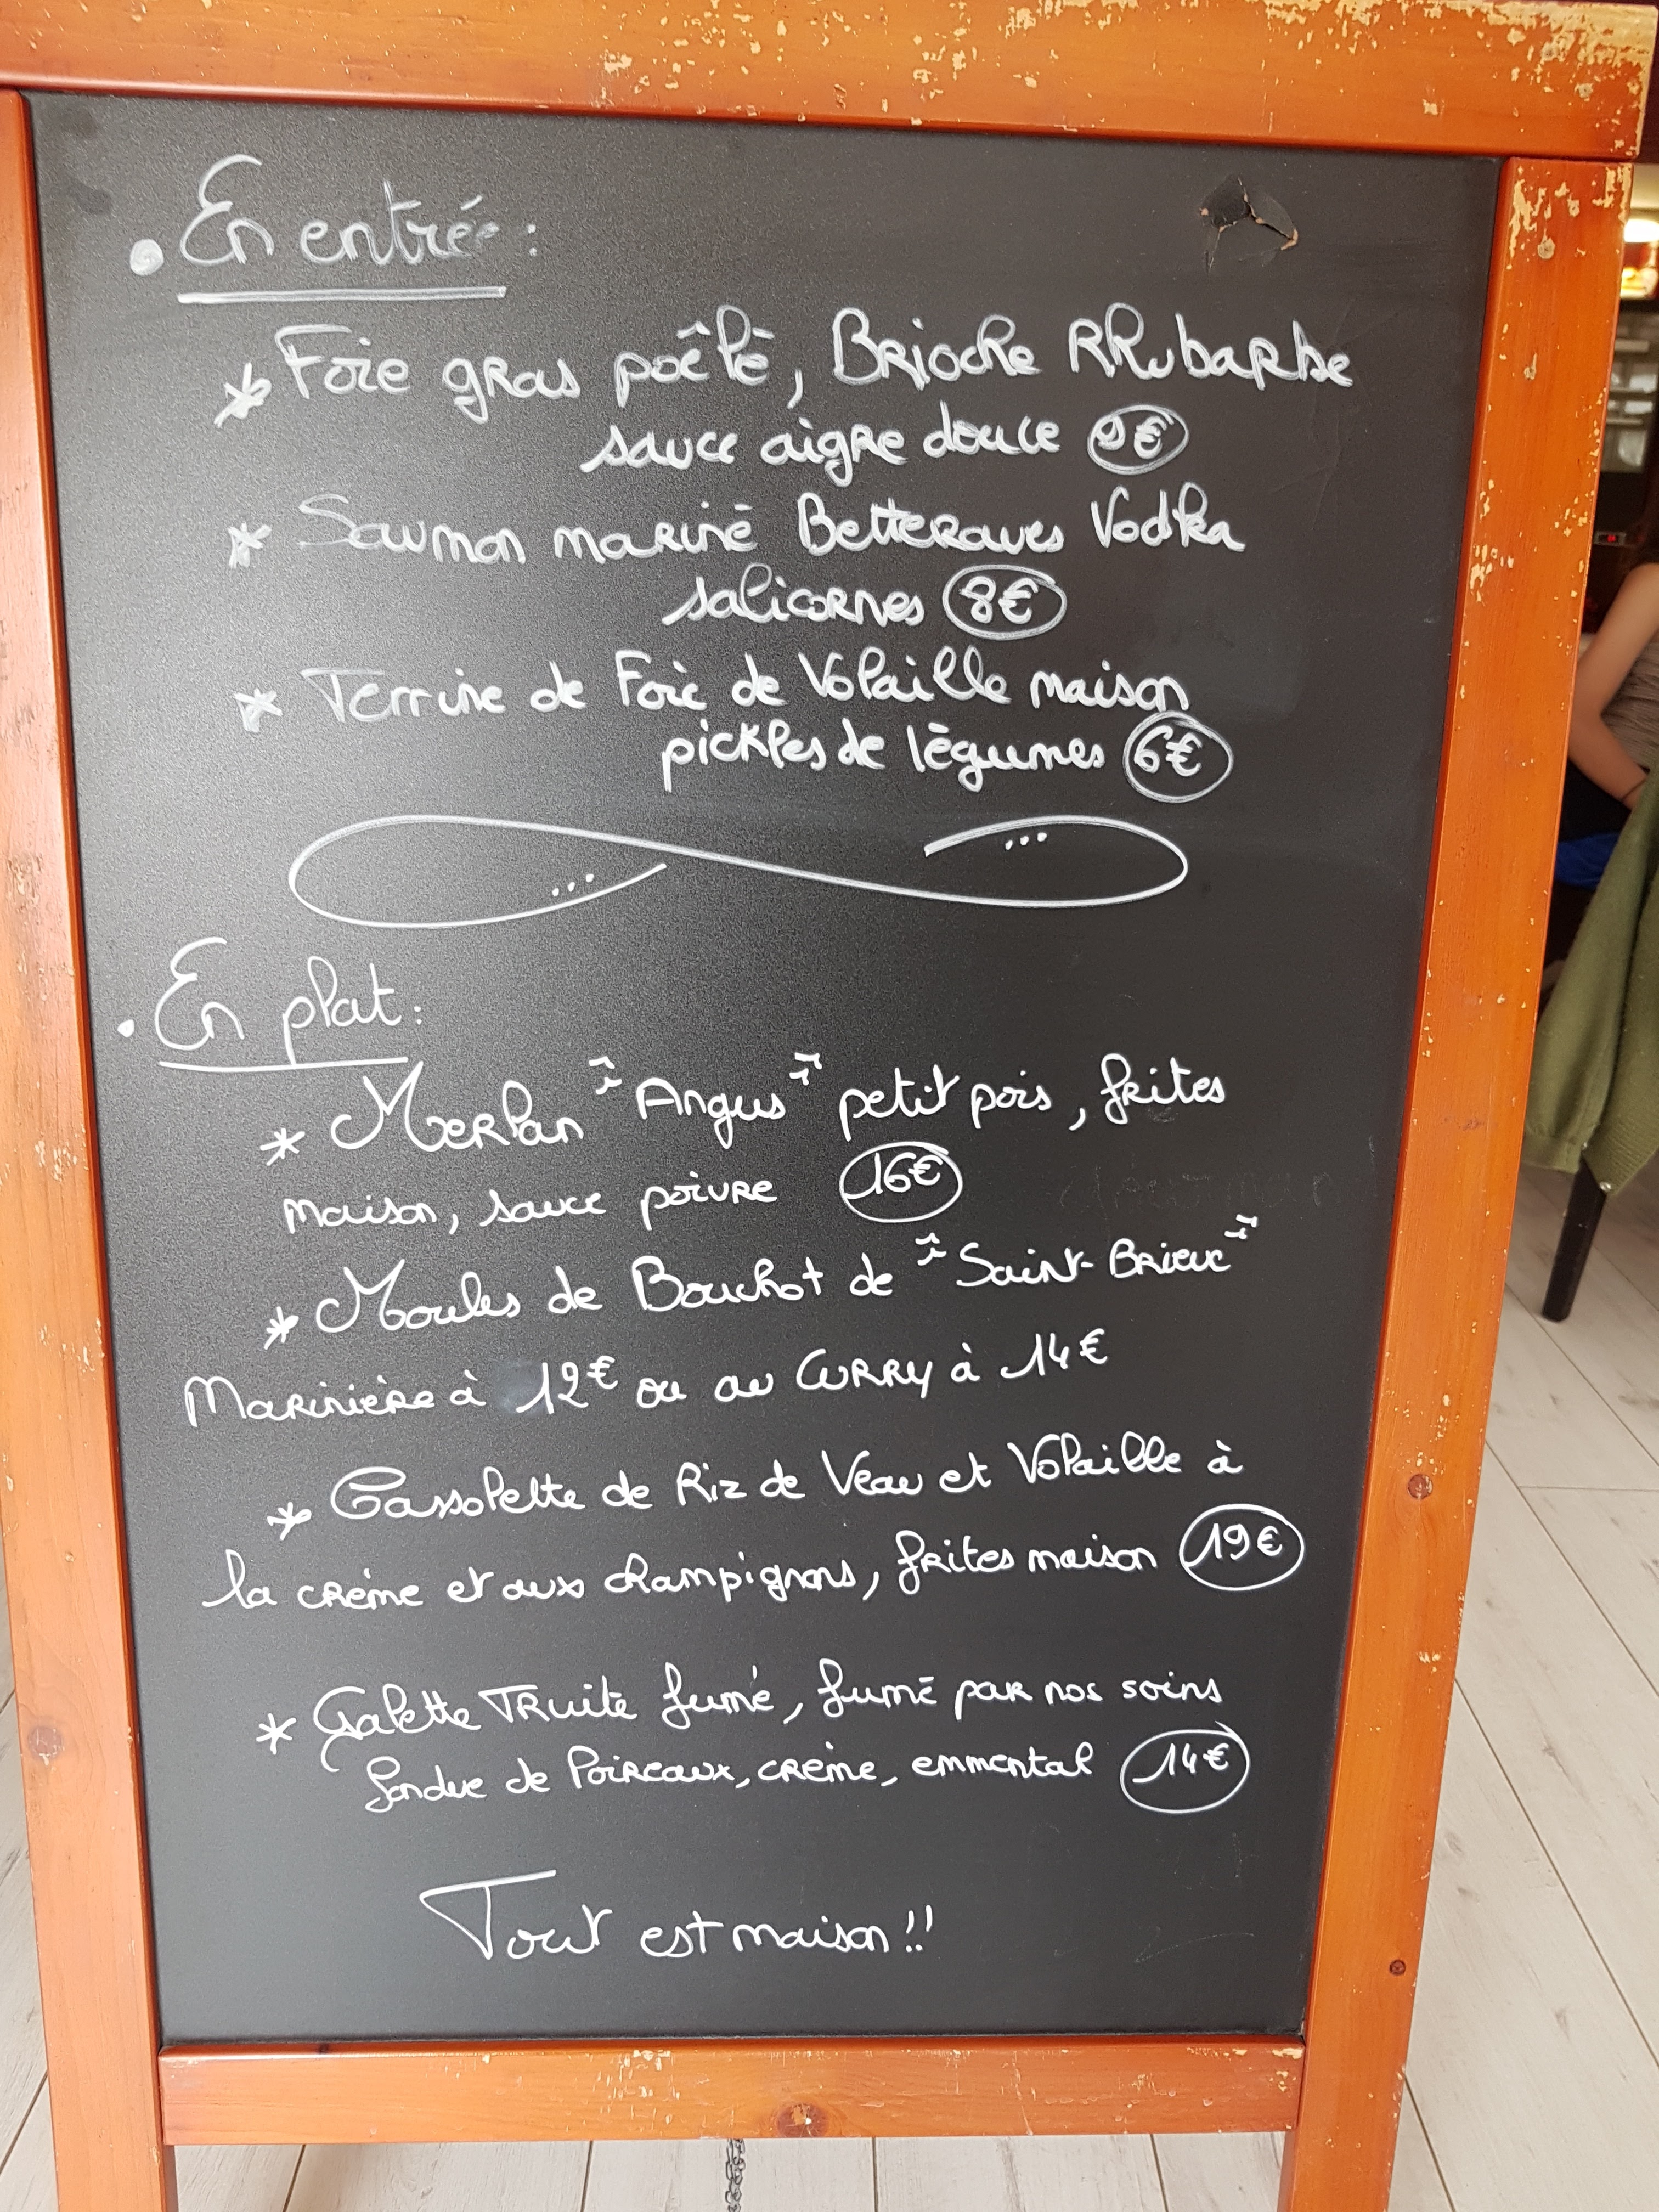 • En entrée :
* Foie gras poêlé, Brioche Rhubarbe
sauce aigre douce 9€
* Saumon mariné Betteraves Vodka
salicornes 8€
* Terrine de Foie de Volaille maison
pickles de légumes 6€
• En plat :
* Merlan "Angus" petit pois, frites
maison, sauce poivre 16€
* Moules de Bouchot de "Saint-Brieuc"
Marinière à 12€ ou au CURRY à 14€
* Cassolette de Riz de Veau et Volaille à
la crème et aux champignons, frites maison 19€
* Galette Truite fumé, fumé par nos soins
fondue de Poireaux, crème, emmental 14€
Tout est maison !!